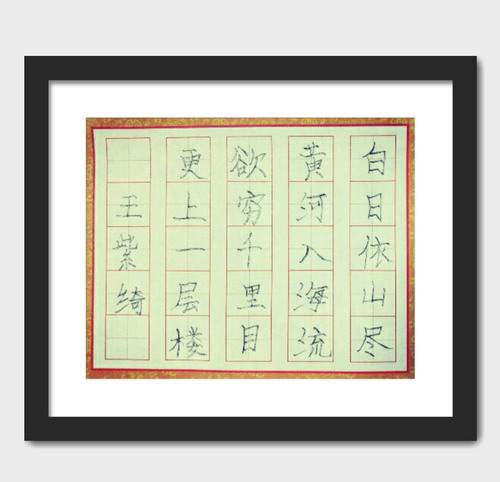 白日依山尽
黄河入海流
欲穷千里目
更上一层楼
王紫绮